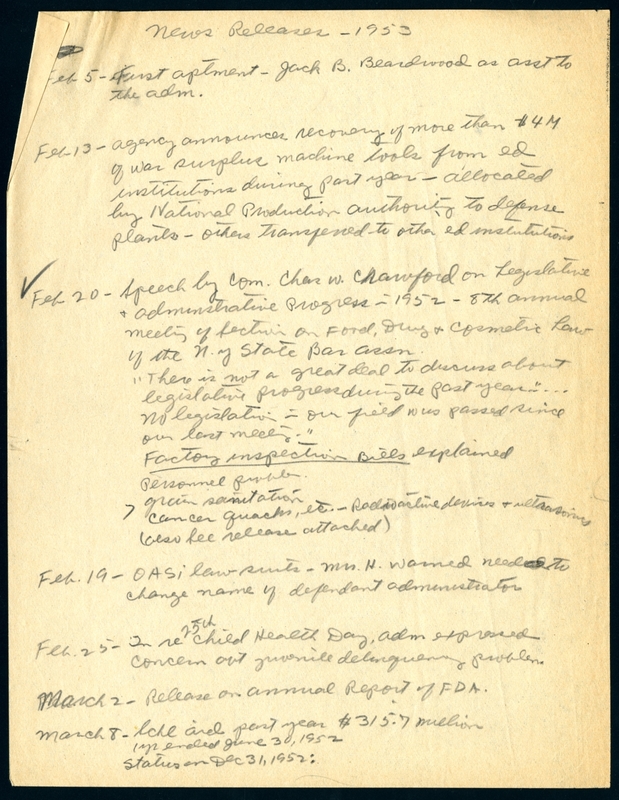 News Releases - 1953
Feb 5 - First aptment - Jack B. Beardwood as asst to
the adm.
Feb. 13 - agency announces recovery of more than $4M
of war surplus machine tools from ed
institutions during past year - allocated
by National Production authority to defense
plants - others transfered to other ed institutions
✓ Feb. 20 - Speech by Com. Chas W. Crawford on Legislative
+ administrative Progress - 1952 - 8th annual
meeting of section on Food, Drug + Cosmetic Law
of the N.Y State Bar assn.
"There is not a great deal to discuss about
legislative progress during the past year" ...
No legislation in our field was passed since
our last meeting."
Factory inspection Bills explained
Personnel problem.
grain sanitation
> cancer quacks, etc. - Radioactive devices +
(also see release attached)
Feb. 19 - OASI law suits - Mrs. H. warned need to
change name of defendant administrator
Feb. 25 - In re 25th Child Health Day, adm expressed
concern abt juvenile delinquency problem.
March 2 - Release on annual Report of FDA.
March 8 - past year $315.7 million
yr. ended June 30, 1952
Status on Dec 31, 1952: